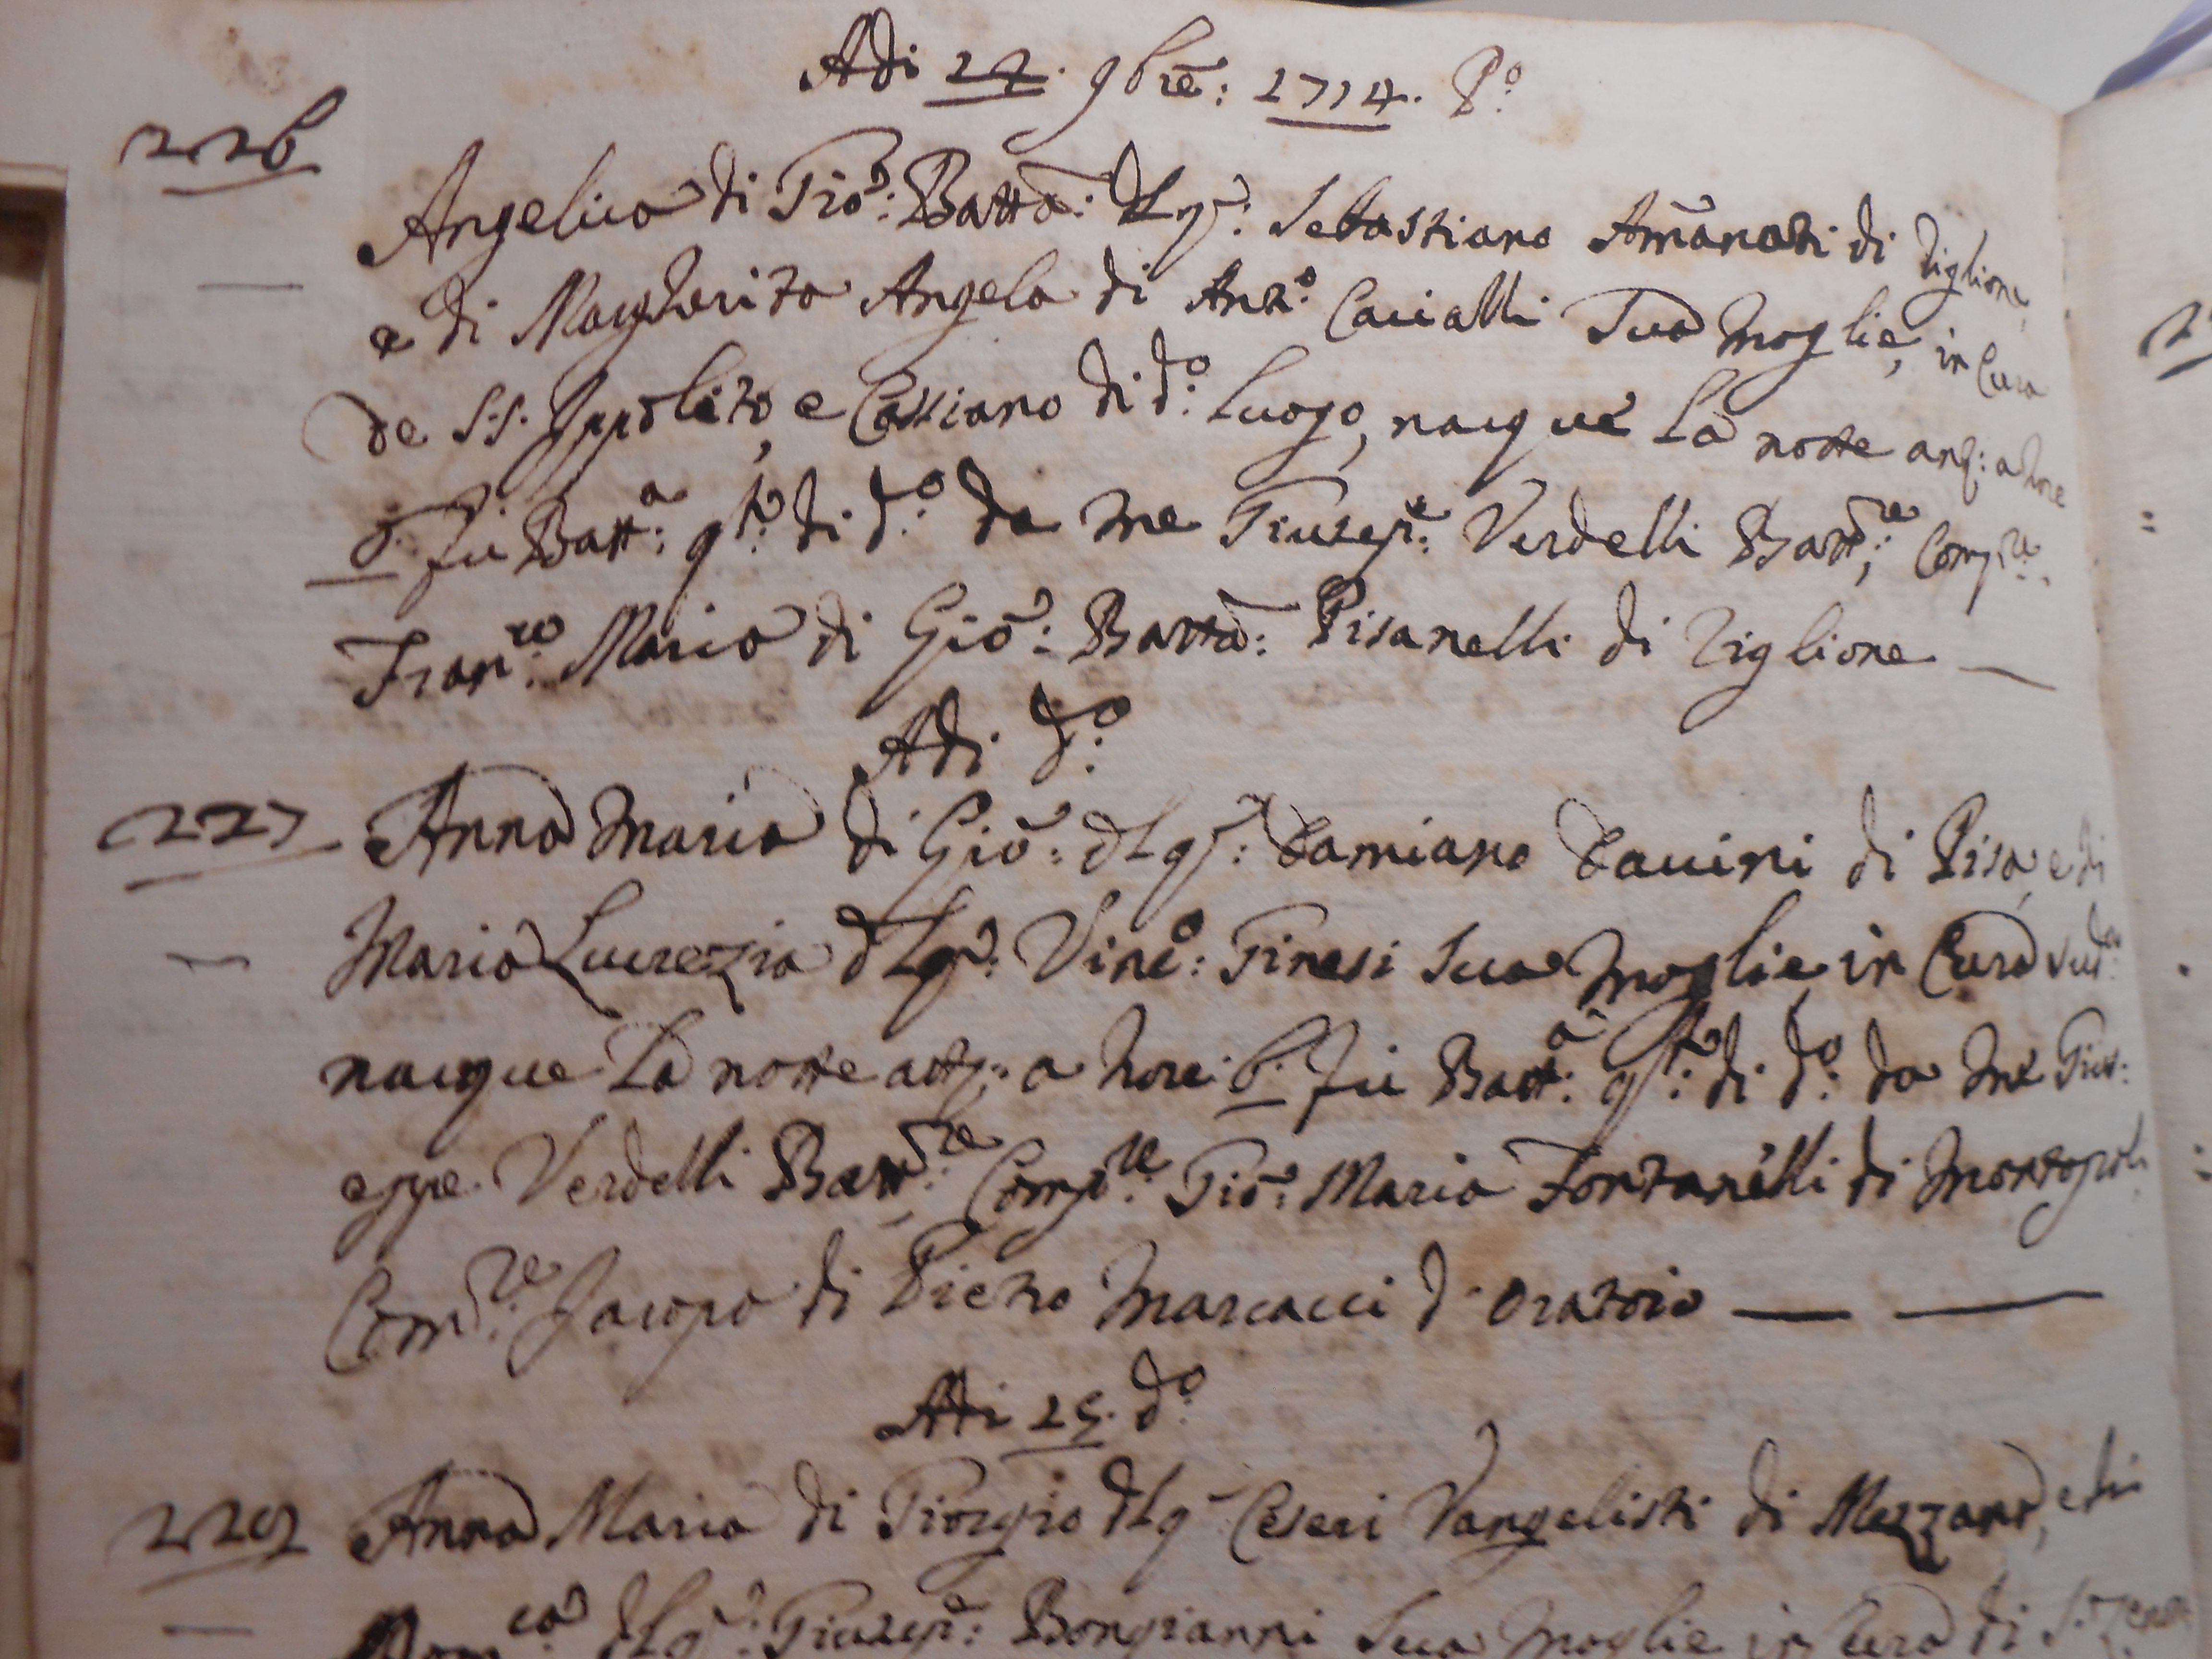 Adi 22. 9bre: 1714. P.o
226
Angelica di Gio: Batta: del q: Sebastiano Amanati di Riglione,
e di Margherita Angela di Ant.o Cacialli Sua moglie, in Cura
de S.S. Ippolito, e Cassiano di d.o luogo, nacque la notte ant: a hore
6. fu Batt.a q.to di d.o da me Giusep.e Verdelli Batt.re, Comp.re
Fran.co Maria di Gio: Batta: Pisanelli di Riglione
Adi d.o
227 Anna Maria di Gio: del q: Damiano Davini di Pisa, e di
Maria Lucrezia del q: Vinc.o: Ginesi sua moglie in Cura sud.a
nacque la notte antt: a hore 6. fu Batt.a q.to di d.o da me Gius:
eppe Verdelli Batt.re Comp.re Gio: Maria Fontanelli di Montopoli
Com.re Jacopo di Pietro Marcacci d'Oratoio
Adi 25. d.o
229 Anna Maria di Giorgio del q Ceseri Vangelisti di Mezzana, e di
Dom.ca del q: Giusep.e: Bongianni Sua moglie in Cura di S. Zeno